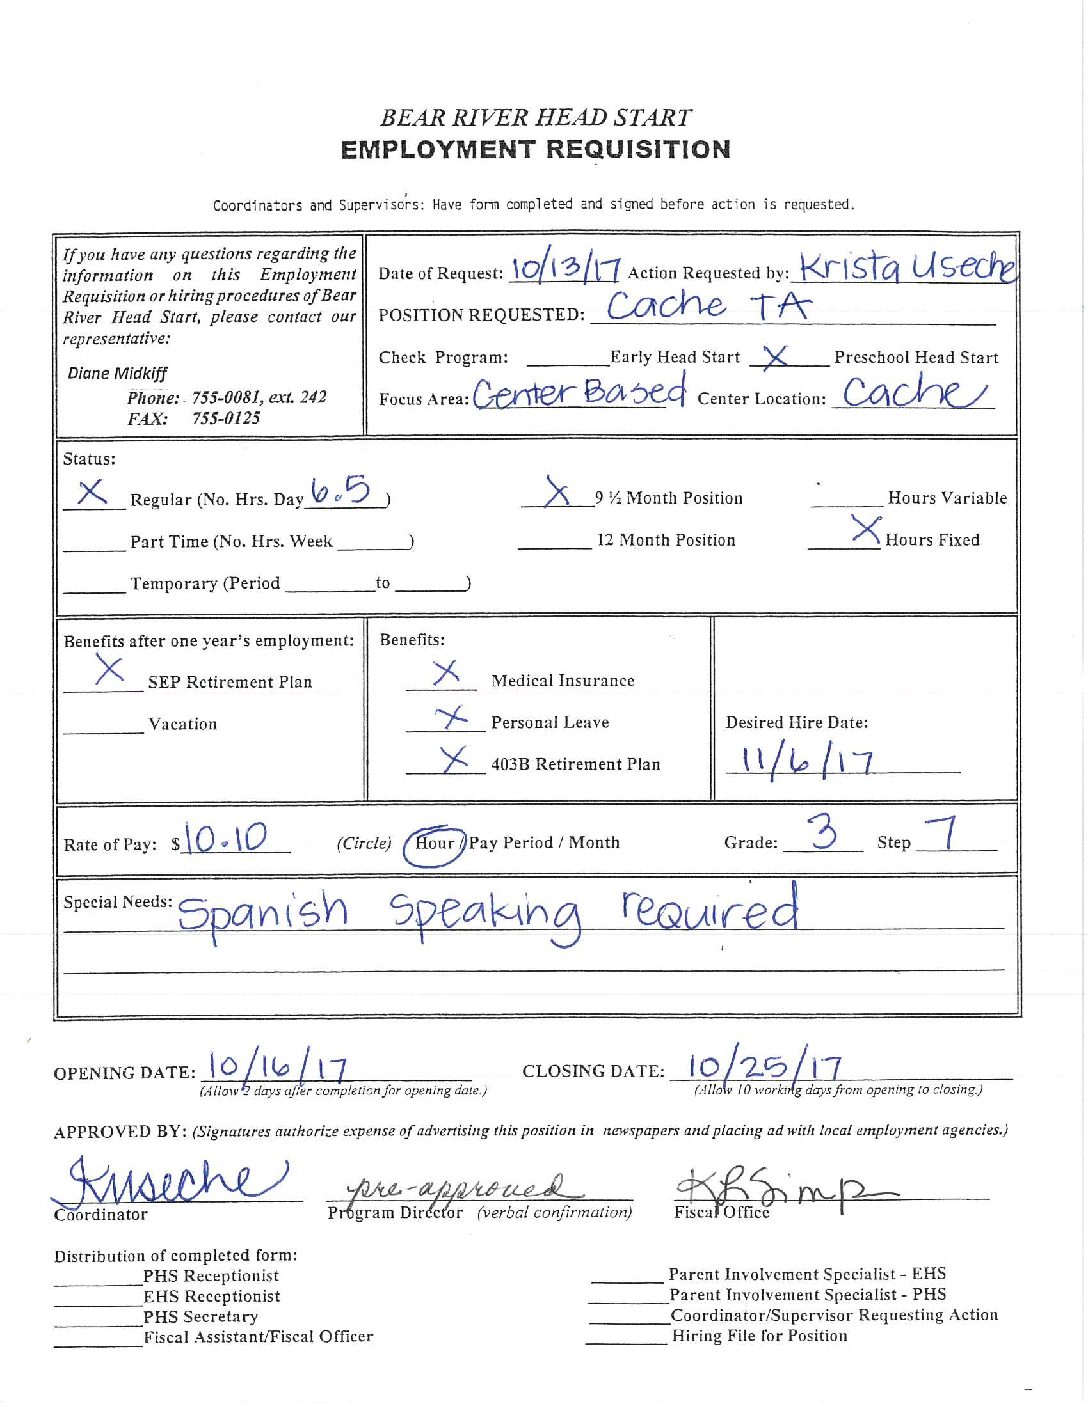 BEAR RIVER HEAD START
EMPLOYMENT REQUISITION
Coordinators and Supervisors: Have form completed and signed before action is requested.
If you have any questions regarding the
information on this Employment
Requisition or hiring procedures of Bear
River Head Start, please contact our
representative:
Diane Midkiff
Phone: 755-0081, ext. 242
FAX: 755-0125
Date of Request: 10/13/17 Action Requested by: Krista Useche
POSITION REQUESTED: Cache TA
Check Program: ______ Early Head Start X Preschool Head Start
Focus Area: Center Based Center Location: Cache
Status:
X Regular (No. Hrs. Day 6.5 ) X 9 ½ Month Position ______ Hours Variable
______ Part Time (No. Hrs. Week ______) ______ 12 Month Position X Hours Fixed
______ Temporary (Period ______ to ______)
Benefits after one year's employment:
X SEP Retirement Plan
______ Vacation
Benefits:
X Medical Insurance
X Personal Leave
X 403B Retirement Plan
Desired Hire Date:
11/6/17
Rate of Pay: $10.10 (Circle) Hour / Pay Period / Month Grade: 3 Step 7
Special Needs: Spanish speaking required
OPENING DATE: 10/16/17 CLOSING DATE: 10/25/17
(Allow 2 days after completion for opening date.) (Allow 10 working days from opening to closing.)
APPROVED BY: (Signatures authorize expense of advertising this position in newspapers and placing ad with local employment agencies.)
KUseche pre-approved KRSimp
Coordinator Program Director (verbal confirmation) Fiscal Office
Distribution of completed form:
______ PHS Receptionist ______ Parent Involvement Specialist - EHS
______ EHS Receptionist ______ Parent Involvement Specialist - PHS
______ PHS Secretary ______ Coordinator/Supervisor Requesting Action
______ Fiscal Assistant/Fiscal Officer ______ Hiring File for Position